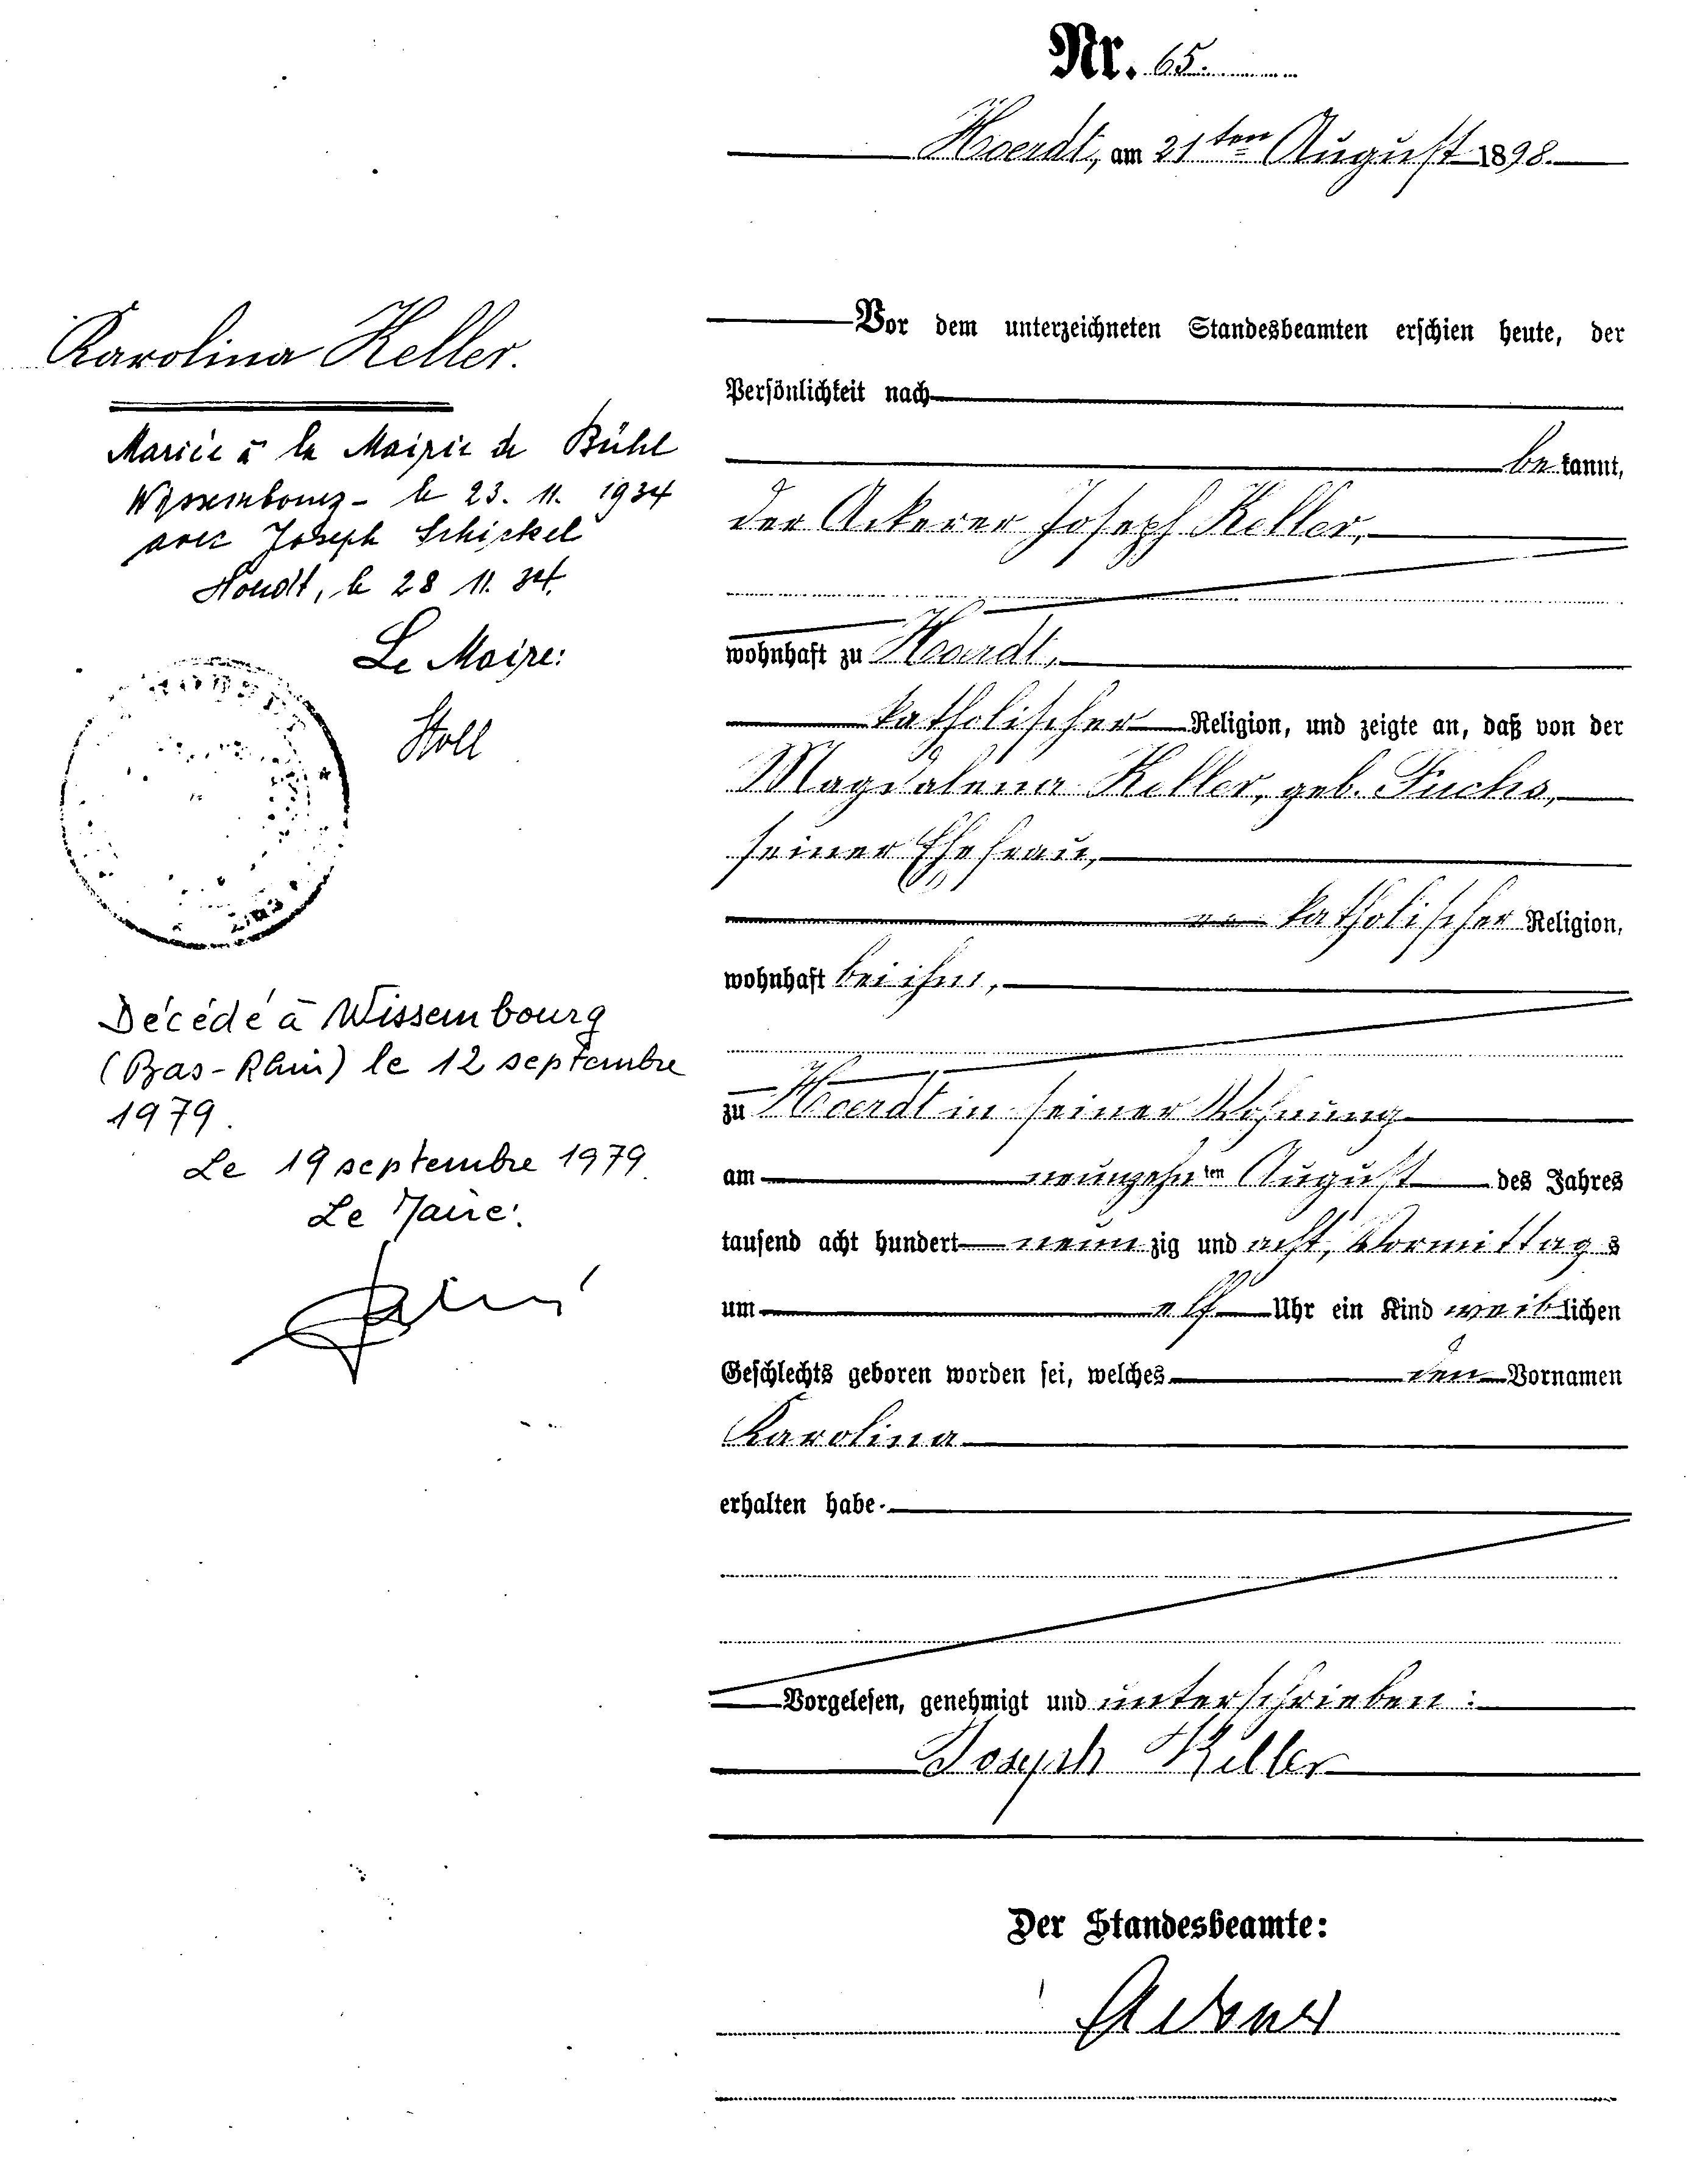 Nr. 65.
Hoerdt, am 21ten August 1898.
Karolina Keller.
Mariée à la Mairie de Bühl
Wissembourg - le 23. 11. 1934
avec Joseph Schickel
Hoerdt, le 28 11. 34.
Le Maire:
Stoll
Décédé à Wissembourg
(Bas-Rhin) le 12 septembre
1979.
Le 19 septembre 1979.
Le Maire:
Vor dem unterzeichneten Standesbeamten erschien heute, der
Persönlichkeit nach
bekannt,
der Ackerer Joseph Keller,
wohnhaft zu Hoerdt,
katholischer Religion, und zeigte an, daß von der
Magdalena Keller, geb. Fuchs,
seiner Ehefrau,
katholischer Religion,
wohnhaft bei ihm,
zu Hoerdt in seiner Wohnung
am neunzehnten August des Jahres
tausend acht hundert neunzig und acht, Vormittags
um elf Uhr ein Kind weiblichen
Geschlechts geboren worden sei, welches den Vornamen
Karolina
erhalten habe.
Vorgelesen, genehmigt und unterschrieben:
Joseph Keller
Der Standesbeamte: